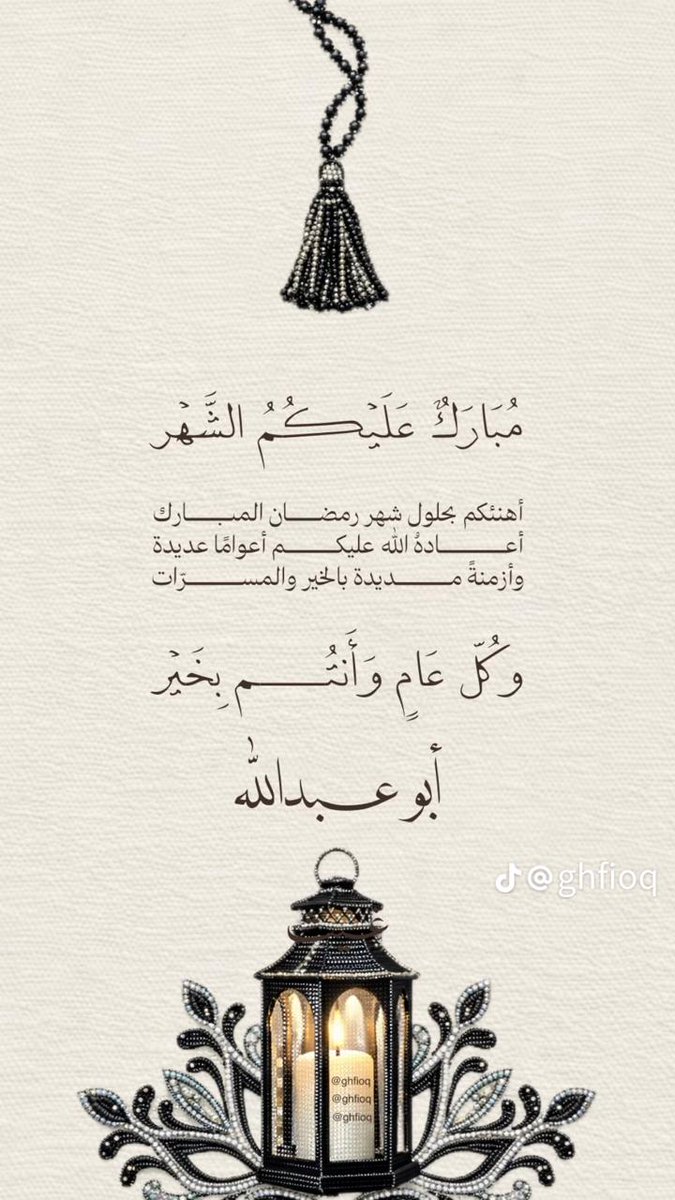 مُبَارَكٌ عَلَيْكُمُ الشَّهْر
أهنئكم بحلول شهر رمضــان المبــارك
أعــادهُ الله عليكــم أعوامًا عديدة
وأزمنةً مــديدة بالخير والمســرّات
وَكُلّ عَامٍ وَأَنتُــم بِخَيْر
أبو عبدالله
@ghfioq
@ghfioq
@ghfioq
@ghfioq